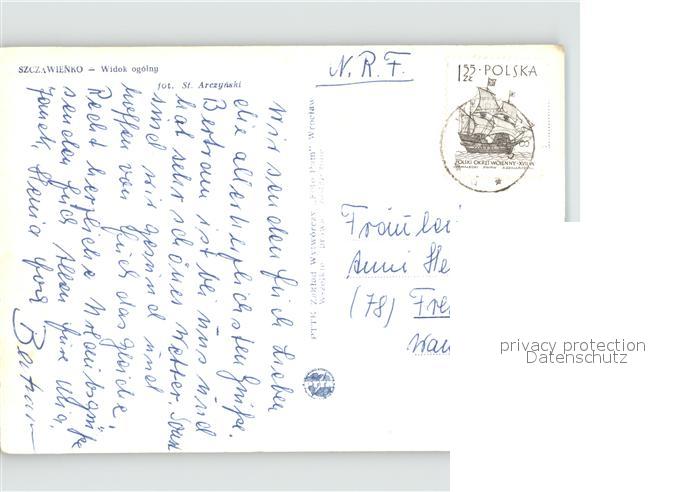 SZCZAWIEŃKO — Widok ogólny
fot. St. Arczyński
N.R.F.
1 55 ZŁ POLSKA
POLSKI OKRĘT WOJENNY - XVII W.
PTTK Zakład Wytwórczy „Foto-Pam" Wrocław
PTTK
Wir senden Euch Lieben
die allerherzlichsten Grüße.
Bertram ist bei uns und
hat sehr schönes Wetter. Sonst
sind wir gesund und
hoffen von Euch das gleiche.
Recht herzliche Urlaubsgrüße
senden Euch allen Eure
Janek, Henia
Bertram
Fräulei
Anni He
(78) Fre
privacy protection
Datenschutz